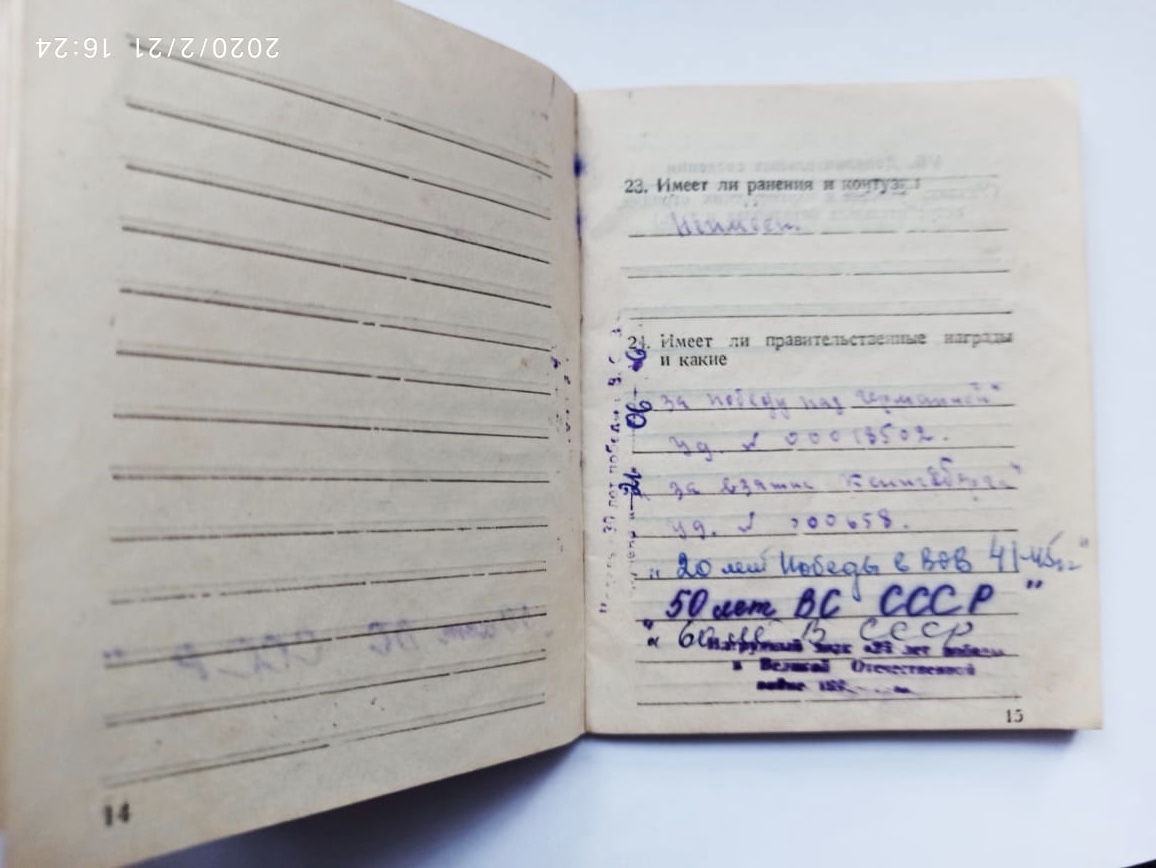 2020/2/21 16:24
14
23. Имеет ли ранения и контузии
24. Имеет ли правительственные награды
и какие
за победу над Германией"
уд. № 00018502.
за взятие Кенигсберга"
уд. №
„20 лет Победы в ВОВ 41-45гг"
"50 лет ВС СССР"
"60 лет В СССР
Нагрудный знак «25 лет победы
в Великой Отечественной
войне
30 лет победы
15